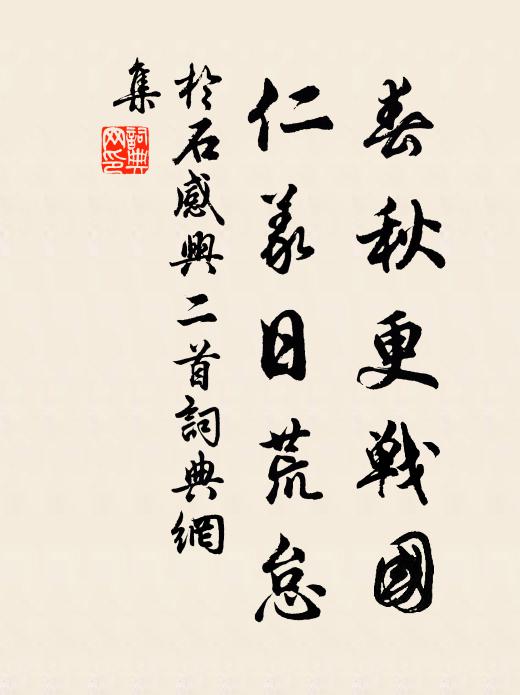 春秋更戰國
仁義日荒怠
於石感興二首詞典網
集
詞典網印